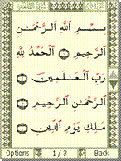 بِسْمِ ٱللَّهِ ٱلرَّحْمَٰنِ
ٱلرَّحِيمِ ۝ ٱلْحَمْدُ لِلَّهِ
رَبِّ ٱلْعَٰلَمِينَ ۝
ٱلرَّحْمَٰنِ ٱلرَّحِيمِ ۝
مَٰلِكِ يَوْمِ ٱلدِّينِ ۝
Options 1/3 Back